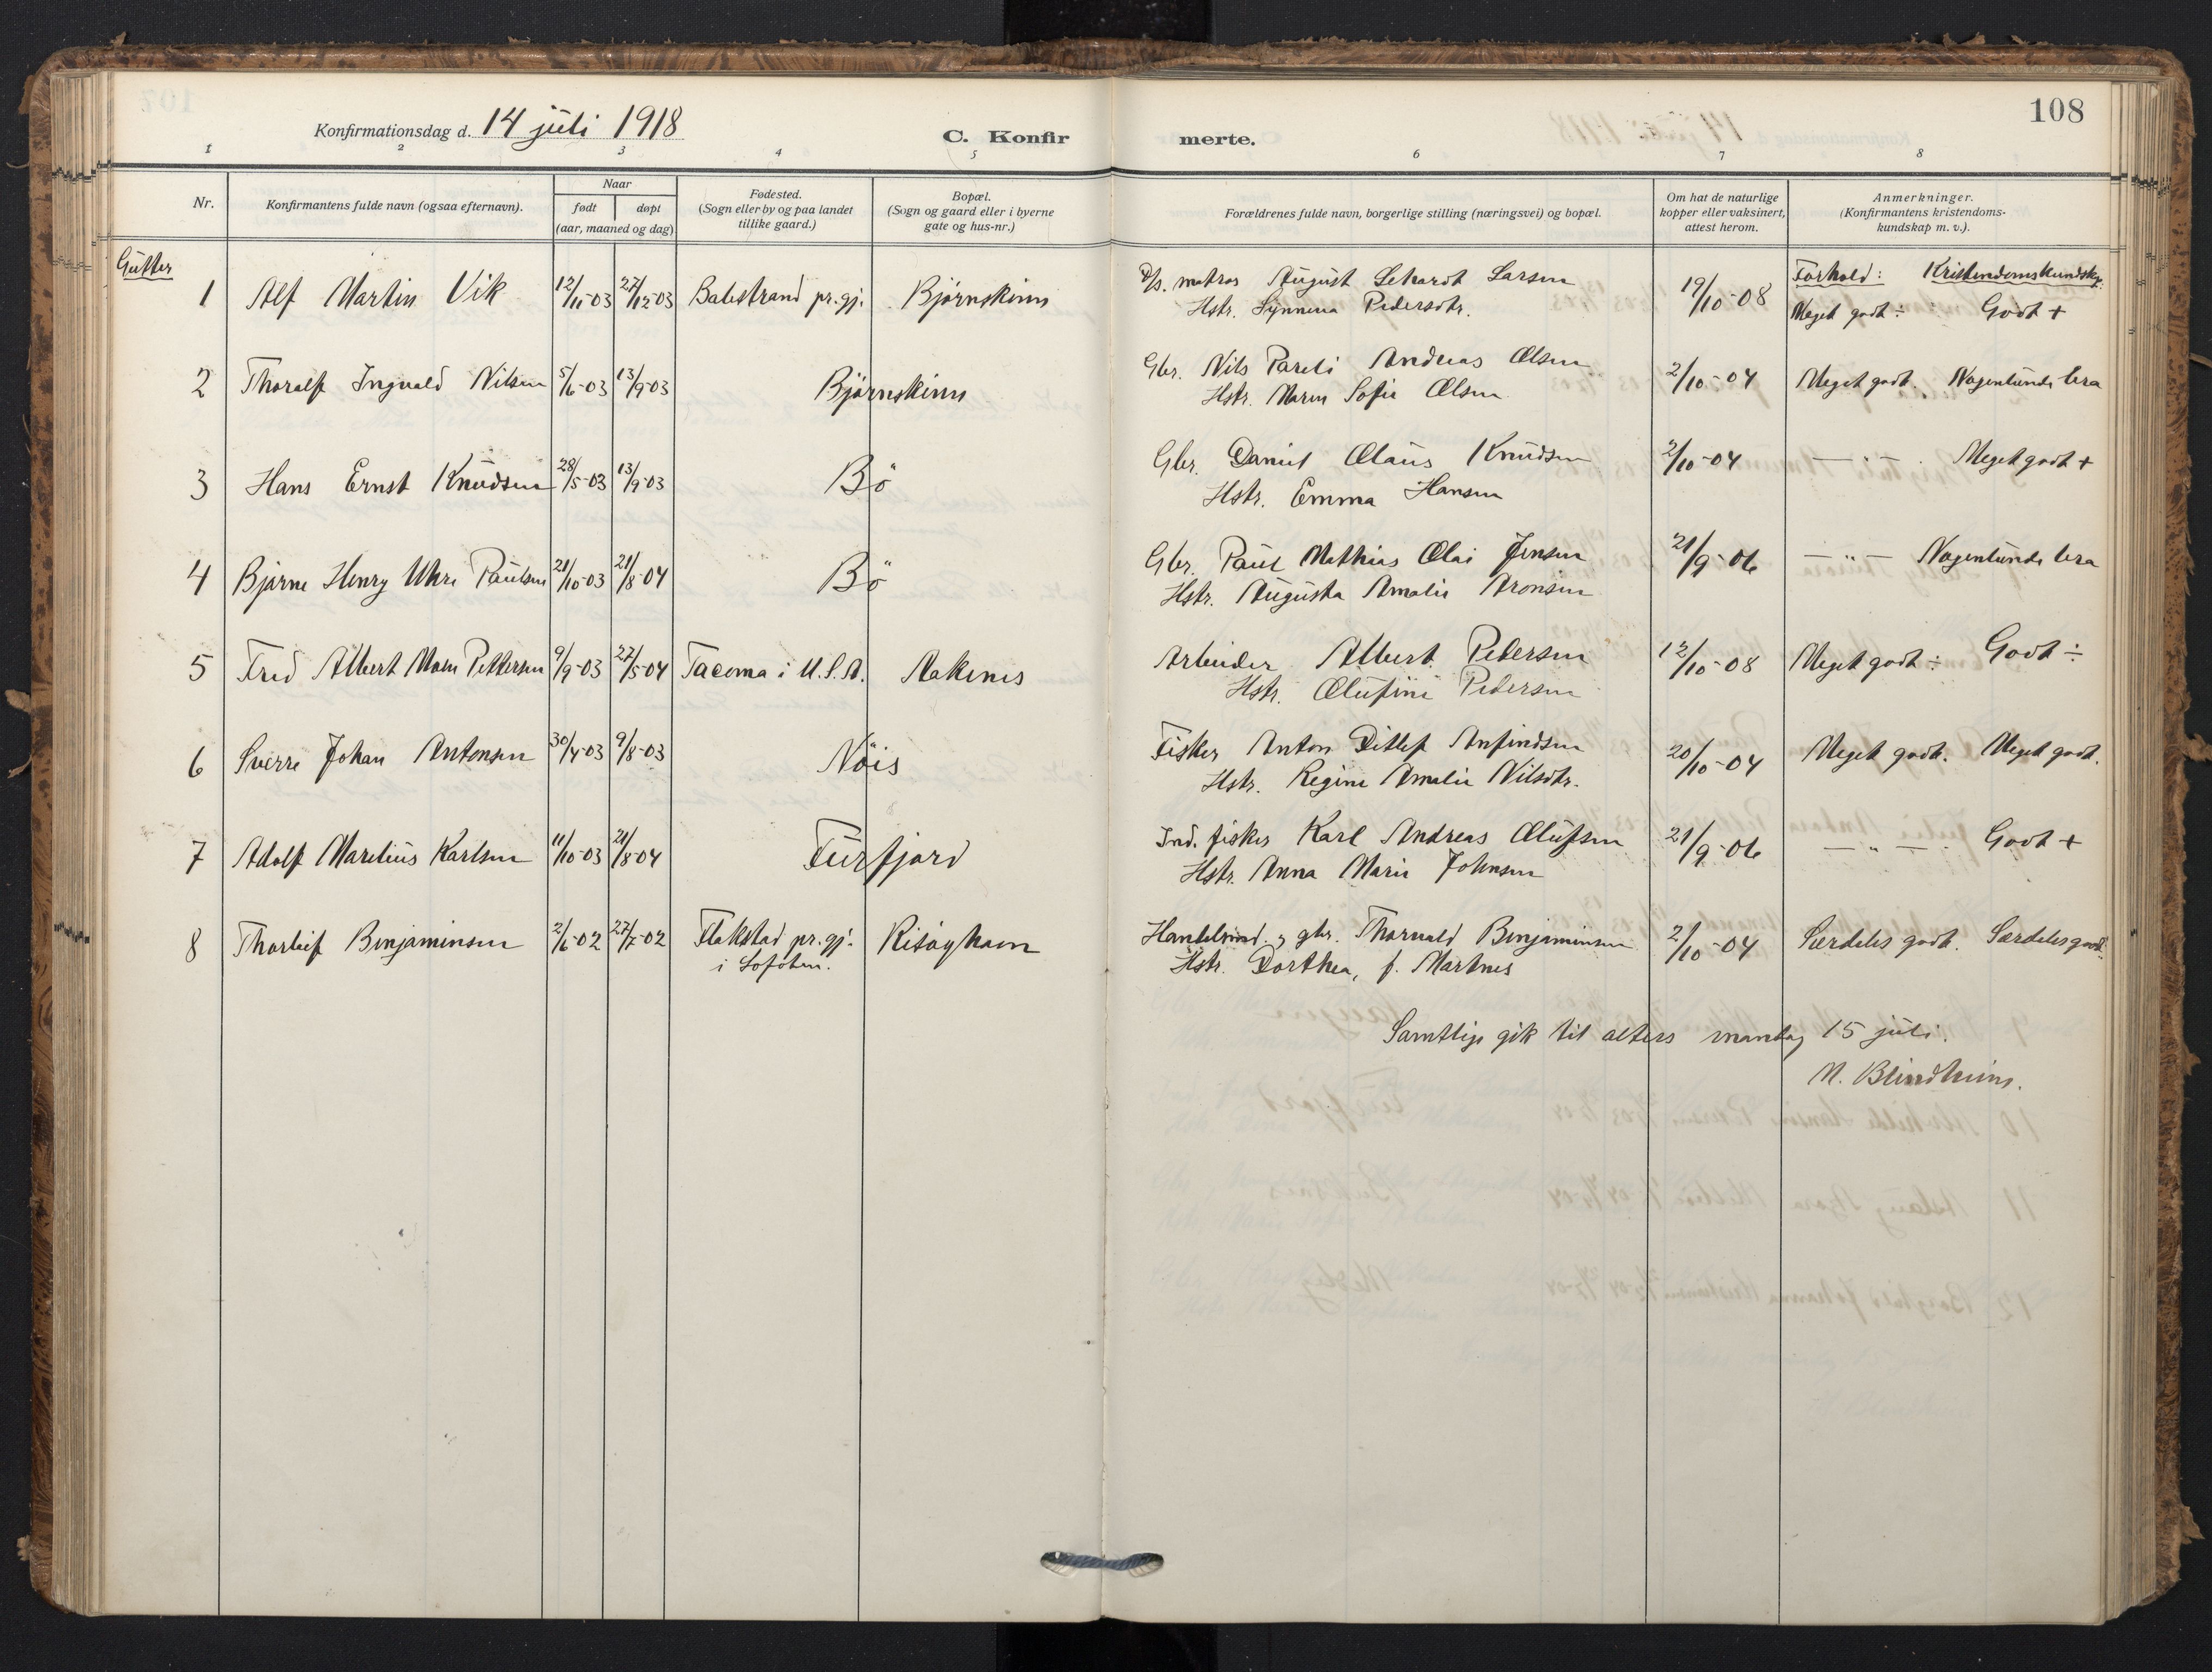 108
Konfirmationsdag d. 14 juli 1918
C. Konfirmerte.
1 2 3 4 5 6 7 8
Nr.
Konfirmantens fulde navn (ogsaa efternavn).
Naar
født døpt
(aar, maaned og dag)
Fødested.
(Sogn eller by og paa landet
tillike gaard.)
Bopæl.
(Sogn og gaard eller i byerne
gate og hus-nr.)
Forældrenes fulde navn, borgerlige stilling (næringsvei) og bopæl.
Om hat de naturlige
kopper eller vaksinert,
attest herom.
Anmerkninger.
(Konfirmantens kristendoms-
kundskap m. v.).
Gutter
Forhold: Kristendomskundskp.
1 Alf Martin Vik 12/11-03 27/12-03 Balestrand pr.gj. Bjørnskinn D/s. matros August Lehardt Larsen 19/10-08 Meget godt ÷ Godt +
Hstr. Synneva Pedersdtr.
2 Thoralf Ingvald Nilsen 5/6-03 13/9-03 Bjørnskinn Gbr. Nils Pareli Andreas Olsen 2/10-04 Meget godt. Nogenlunde bra
Hstr. Maren Sofie Olsen
3 Hans Ernst Knudsen 28/5-03 13/9-03 Bö Gbr. Daniel Olaus Knudsen 2/10-04 — " — Meget godt +
Hstr. Emma Hansen
4 Bjarne Henry Uhre Paulsen 21/10-03 21/8-04 Bö Gbr. Paul Mathias Olai Jensen 21/9-06 — " — Nogenlunde bra
Hstr. Augusta Amalie Aronsen
5 Fred Albert Moen Pettersen 9/9-03 22/5-04 Tacoma i U.S.A. Aakenes Arbeider Albert Pedersen 12/10-08 Meget godt ÷ Godt ÷
Hstr. Olufine Pedersen
6 Sverre Johan Antonsen 30/4-03 9/8-03 Nöis Fisker Anton Ditlef Anfindsen 20/10-04 Meget godt. Meget godt.
Hstr. Regine Amalie Nilsdtr.
7 Adolf Marelius Karlsen 11/10-03 21/8-04 Furfjord Ind. fisker Karl Andreas Olufsen 21/9-06 — " — Godt +
Hstr. Anna Marie Johnsen
8 Thorleif Benjaminsen 2/6-02 27/7-02 Flakstad pr.gj. Risøyhamn Handelsmd. og gbr. Thorvald Benjaminsen 2/10-04 Særdeles godt. Særdeles godt.
i Lofoten. Hstr. Dorthea, f. Martnes
Samtlige gik til alters mandag 15 juli.
N. Blindheim.